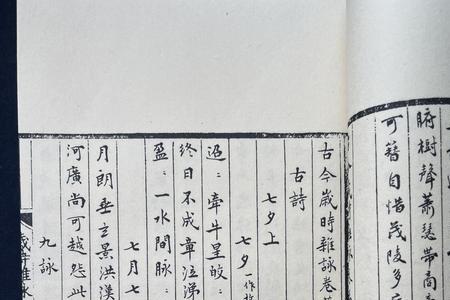 腑樹聲蕭瑟帶商
可籍自惜茂陵多
古今歲時雜詠卷
古詩
七夕上
七夕一作
迢：牽牛星皎：
終日不成章泣涕
盈：一水間脉：
七月七
月朗垂玄景洪漢
河廣尚可越怨此
九詠
歲時雜詠